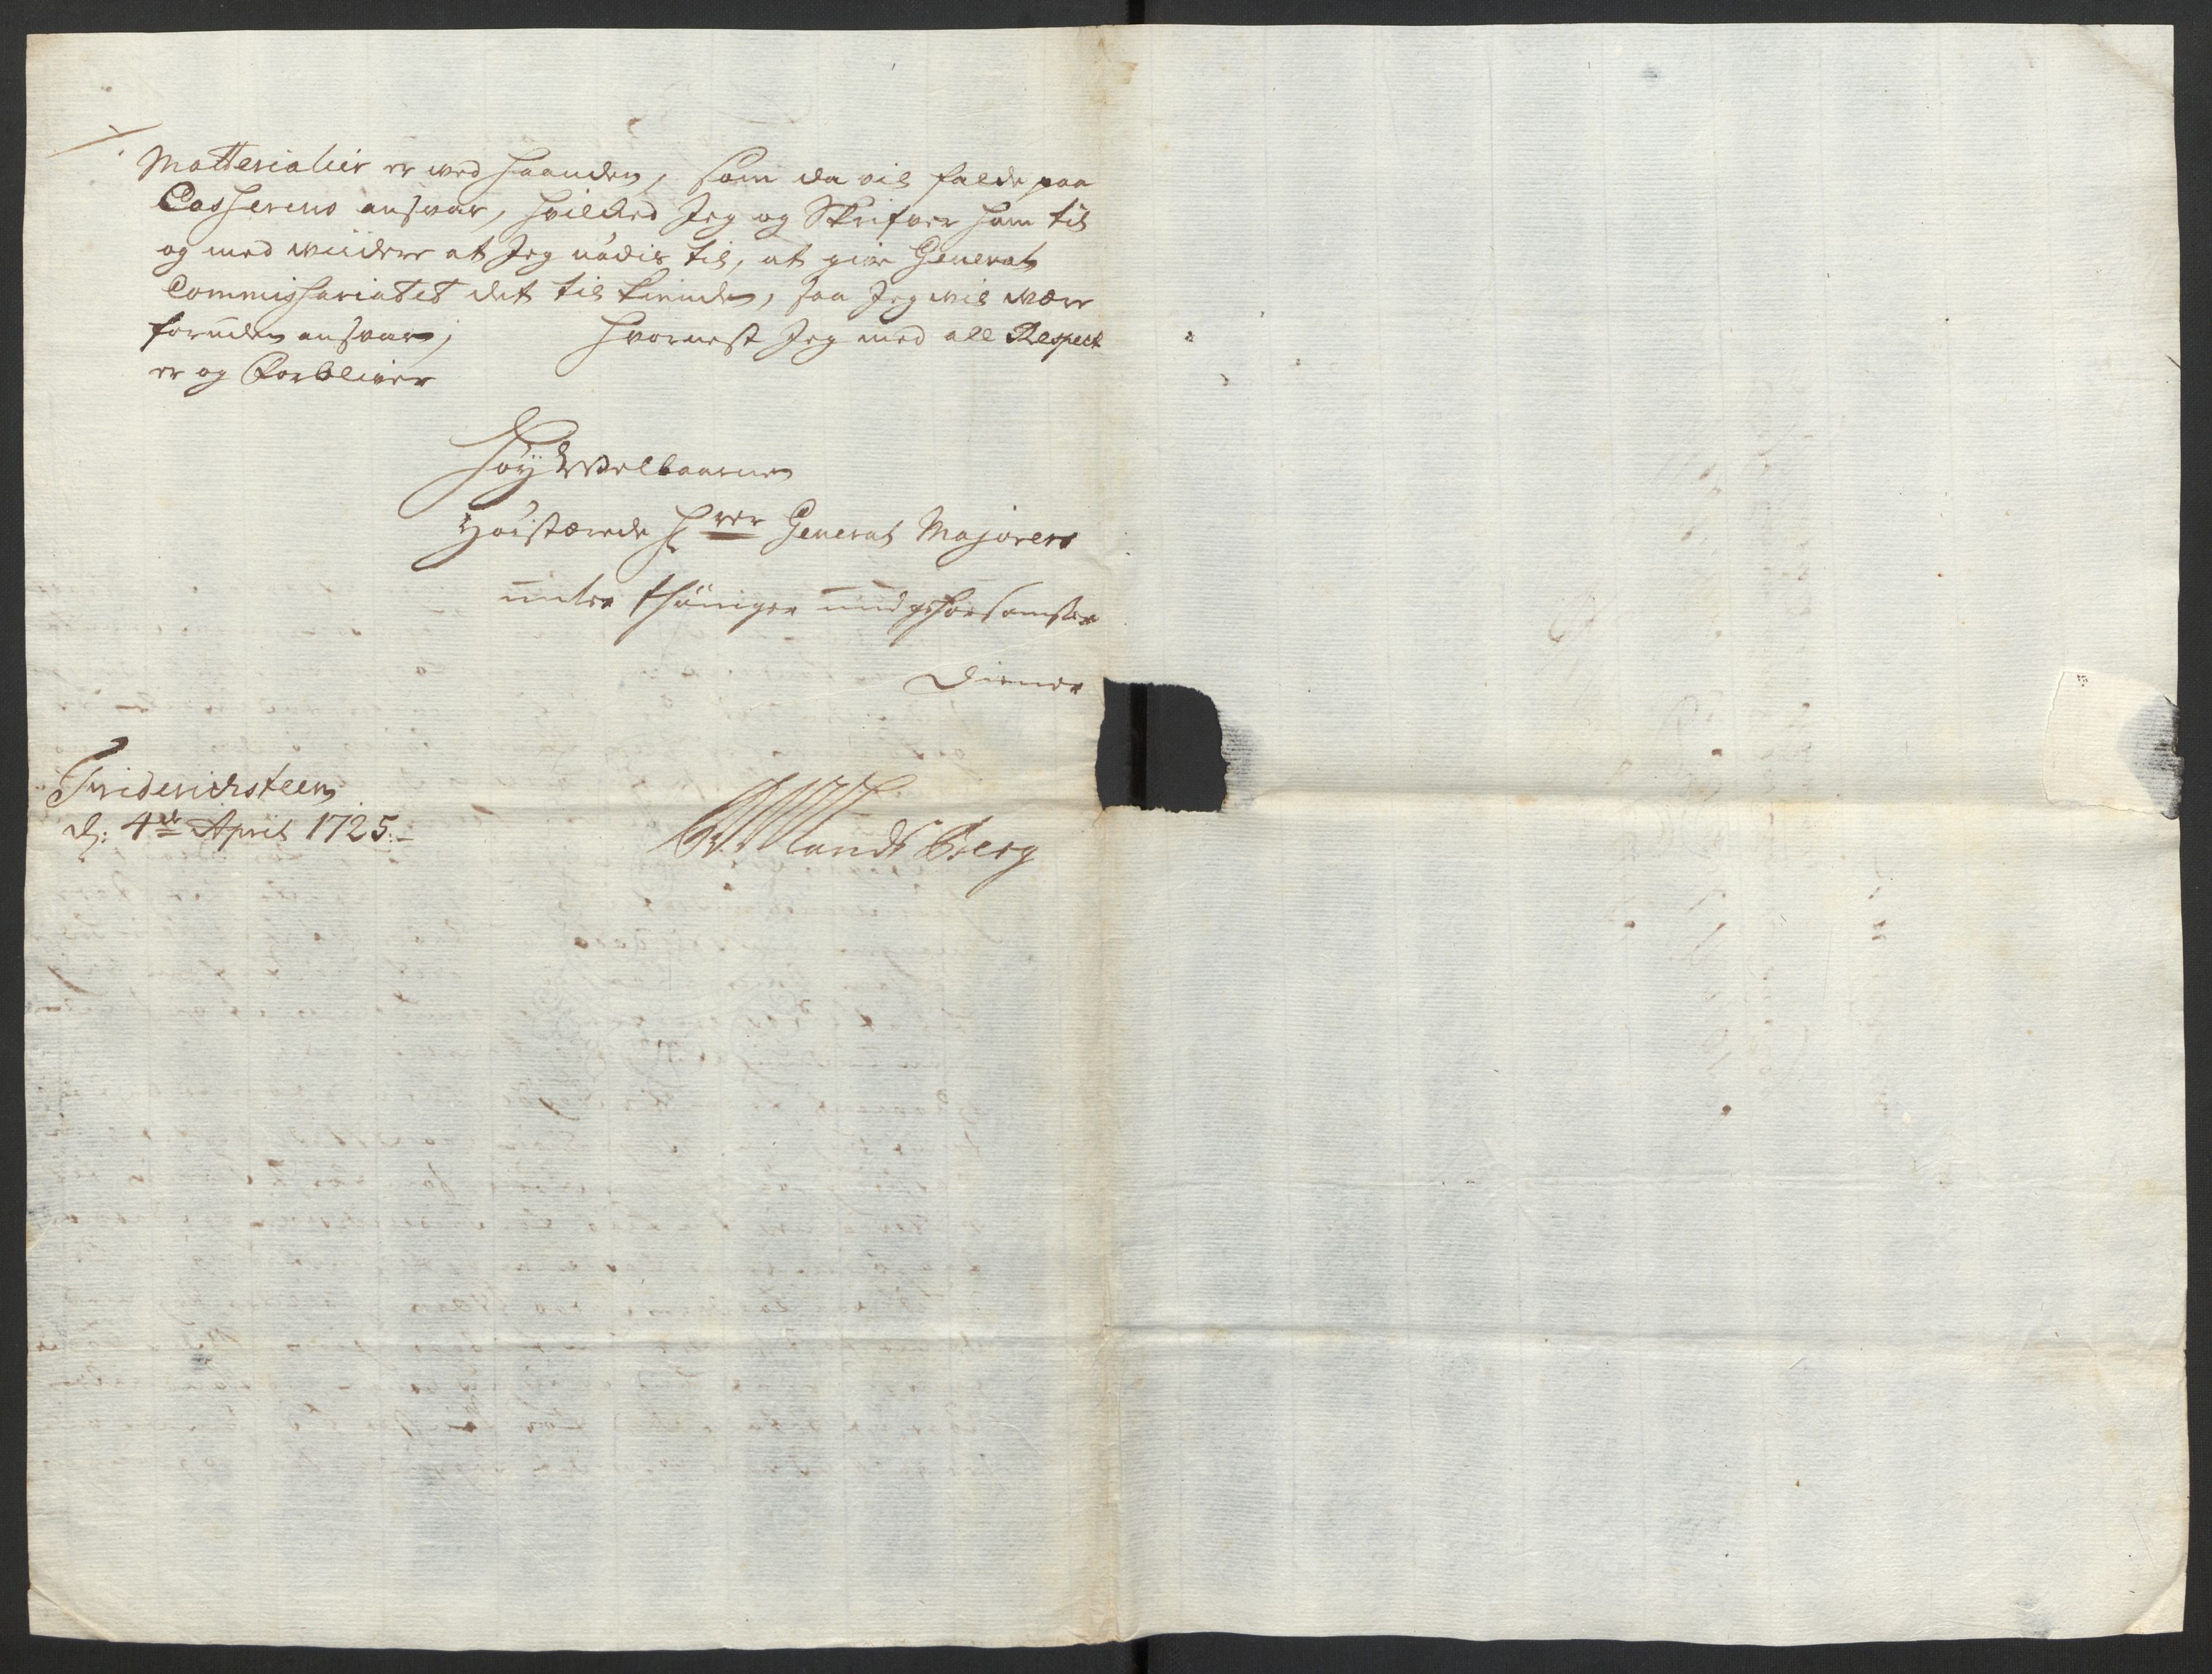 Matterialier er ved haanden, som da vil falde paa
Casserens ansvar, hvilcked Jeg og Skrifver ham til
og med viidere at Jeg nødis til, at give General
Commissariatet det til kiende, saa Jeg vil være
foruden ansvar; hvornest Jeg med all Respect
er og Forbliver
Høy Velbaarne
Høistærede Hrer General Majorers
unter thäniger und gehorsamster
Diener
Friderichsteen
d: 4de April 1725.
Landtberg